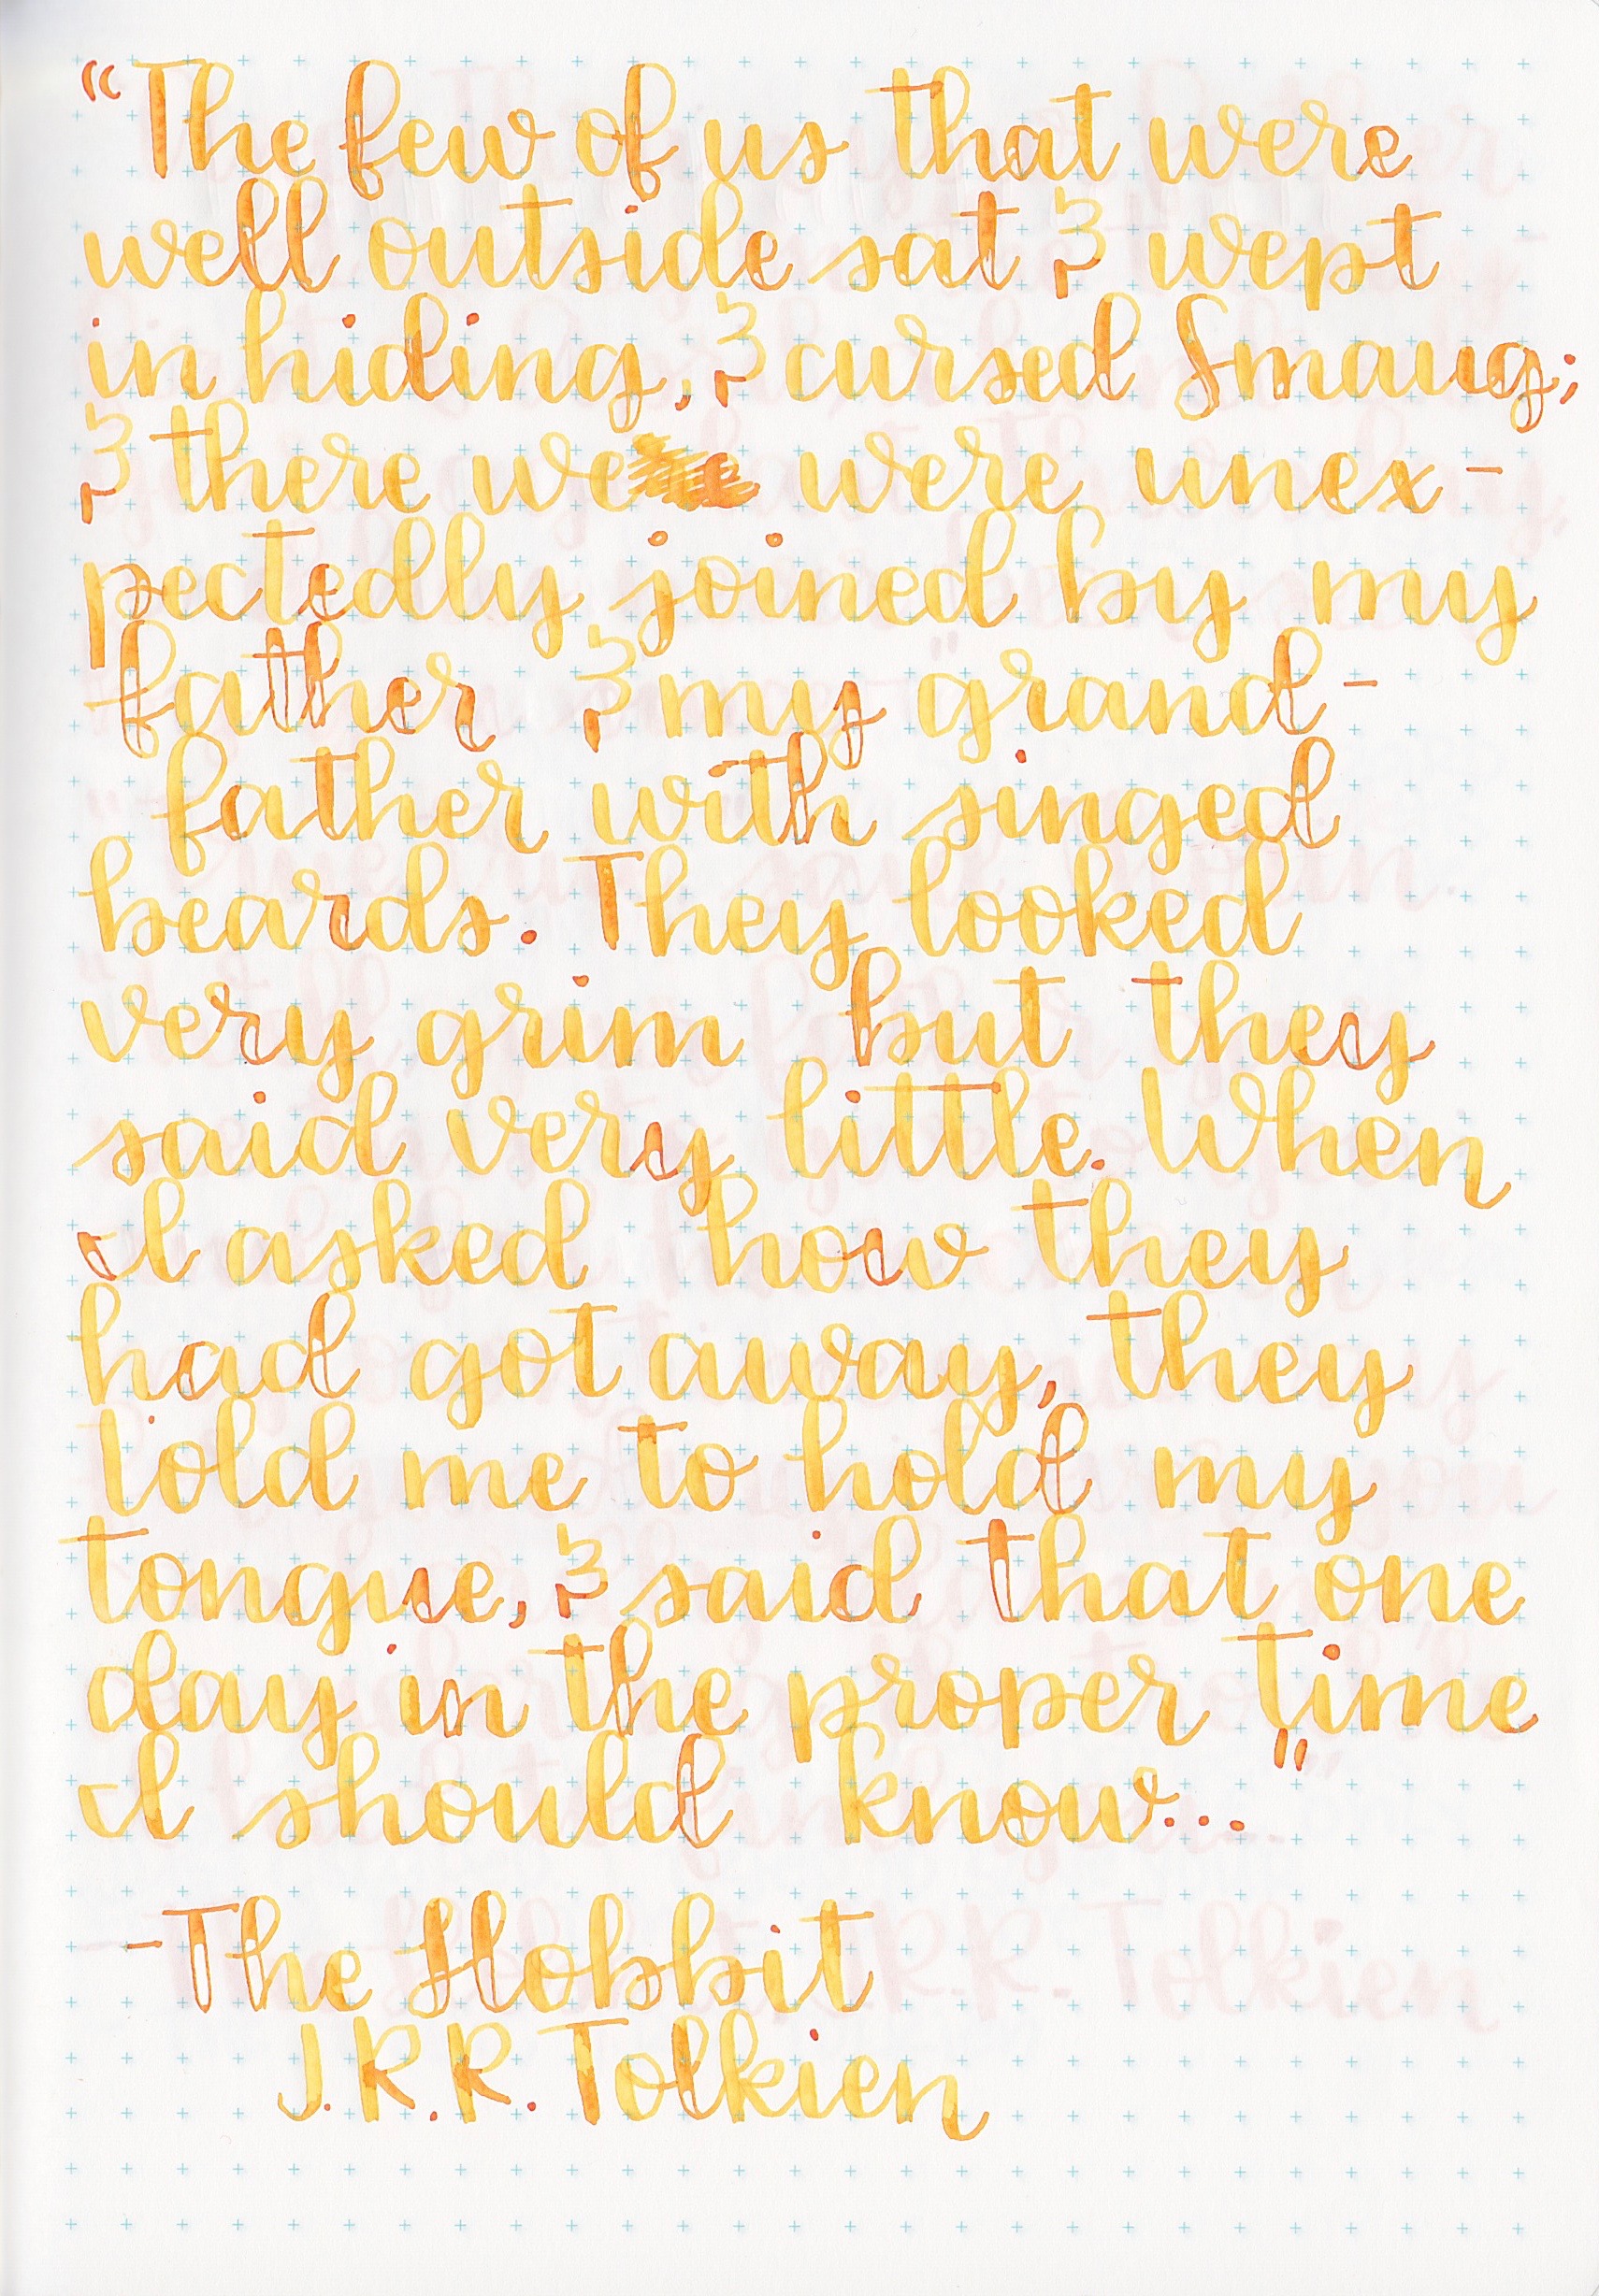 “The few of us that were
well outside sat & wept
in hiding, & cursed Smaug;
& there we were unex-
pectedly joined by my
father & my grand-
father with singed
beards. They looked
very grim but they
said very little. When
I asked how they
had got away, they
told me to hold my
tongue, & said that one
day in the proper time
I should know..."
-The Hobbit
J.R.R. Tolkien